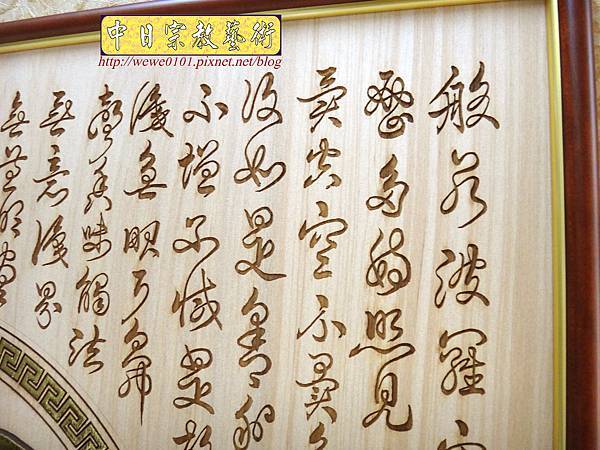 中日宗教藝術
http://wewe0101.pixnet.net/blog
般若波羅
蜜多時照見
異空空不異色
復如是舍利
不增不減是故
識無眼耳鼻
聲香味觸法
無意識界
無無明盡